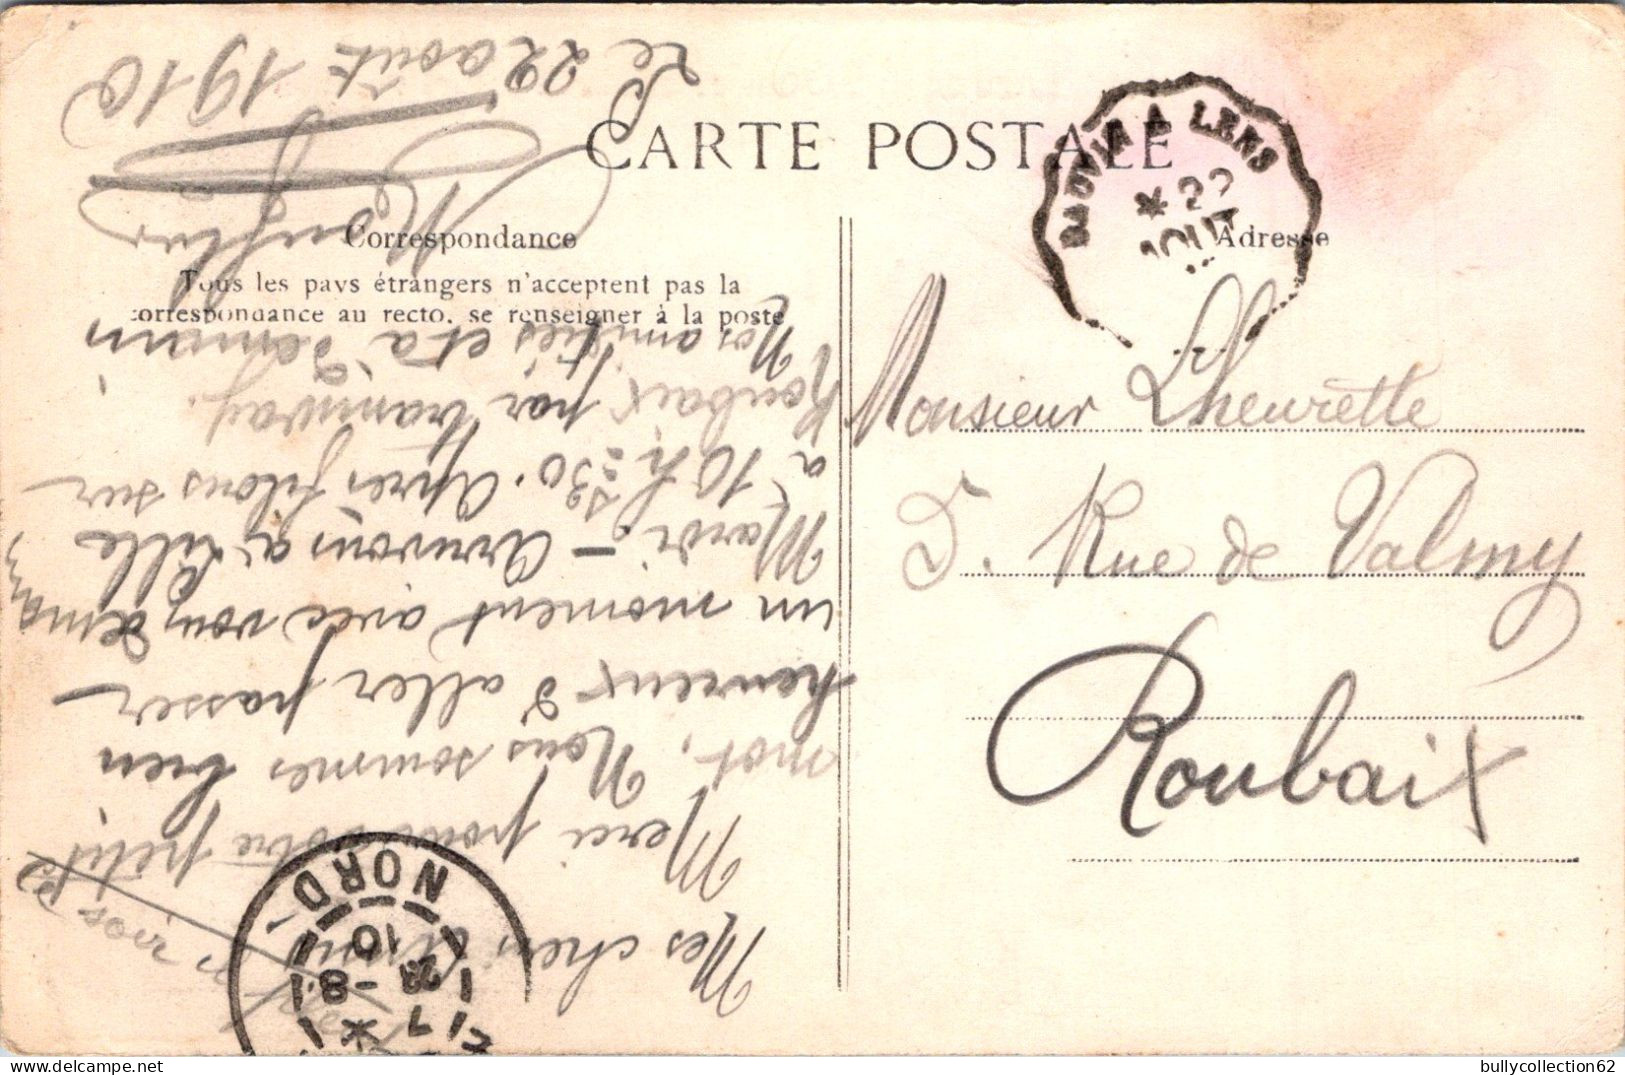 CARTE POSTALE
Correspondance
Tous les pays étrangers n'acceptent pas la
correspondance au recto. se renseigner à la poste
Adresse
BAUVIN A LENS
* 22
AOUT
Monsieur Lheurette
5. Rue de Valmy
Roubaix
Mes chers amis
Merci pour votre petit
mot. Nous sommes bien
heureux d'aller passer
un moment avec vous demain
Mardi - Arrivons à Lille
à 10 h: 30. Après filons sur
Roubaix par tramway.
Nos amitiés et à demain
Le 22 août 1910
NORD
7 *
23 - 8
10
bullycollection62